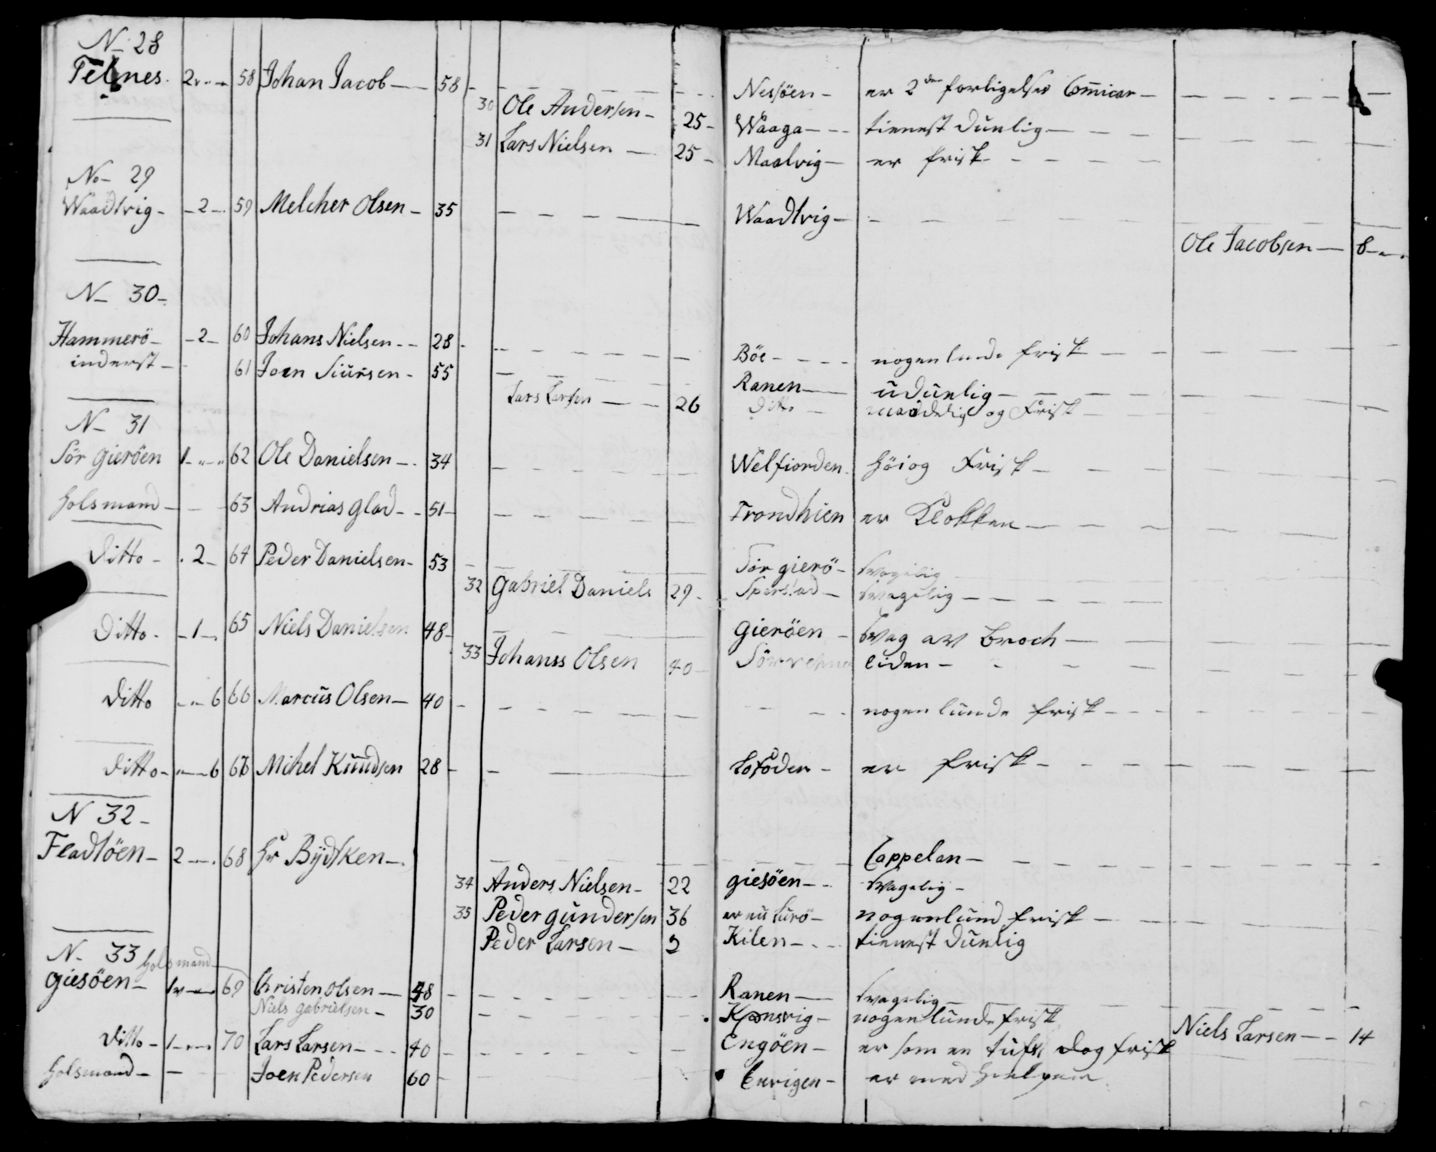 N 28
Telnes 2 58 Johan Jacob 58 Nesöen er 2den forligelses Commicær
30 Ole Andersen 25 Waaga tienest dunlig
31 Lars Nielsen 25 Maalvig er frisk
No 29
Waadtvig 2 59 Melcher Olsen 35 Waadtvig
Ole Jacobsen 8
N 30
Hammerö 2 60 Johans Nielsen 28 Böe nogenlunde frisk
inderst 61 Joen Siursen 55 Ranen udunlig
Lars Larsen 26 Ditto maadelig og Frisk
N 31
Sör gieröen 1 62 Ole Danielsen 34 Welfiorden höi og Frisk
Holsmand 63 Andrias Glad 51 Trondhien er Klokker
Ditto 2 64 Peder Danielsen 53 Sör gierö Svagelig
32 Gabriel Daniels 29 Svagelig
Ditto 1 65 Niels Danielsen 48 gieröen Svag av broch
33 Johanss Olsen 40 liden
Ditto 6 66 Marcus Olsen 40 nogenlunde frisk
Ditto 6 67 Mikel Knudsen 28 Lofoden er frisk
N 32
Fladtöen 2 68 Hr Bydsken Cappelan
34 Anders Nielsen 22 giesöen Svagelig
35 Peder gundersen 36 er nu Lurö nogenlund frisk
Peder Larsen Kilen tienest dunlig
N 33
Holsmand
Giesöen 1 69 Christen olsen 48 Ranen Svagelig
Niels gabrielsen 30 nogenlunde frisk
Niels Larsen 14
Ditto 1 70 Lars Larsen 40 Engöen er som en dog frisk
Holsmand Joen Pedersen 60 er med